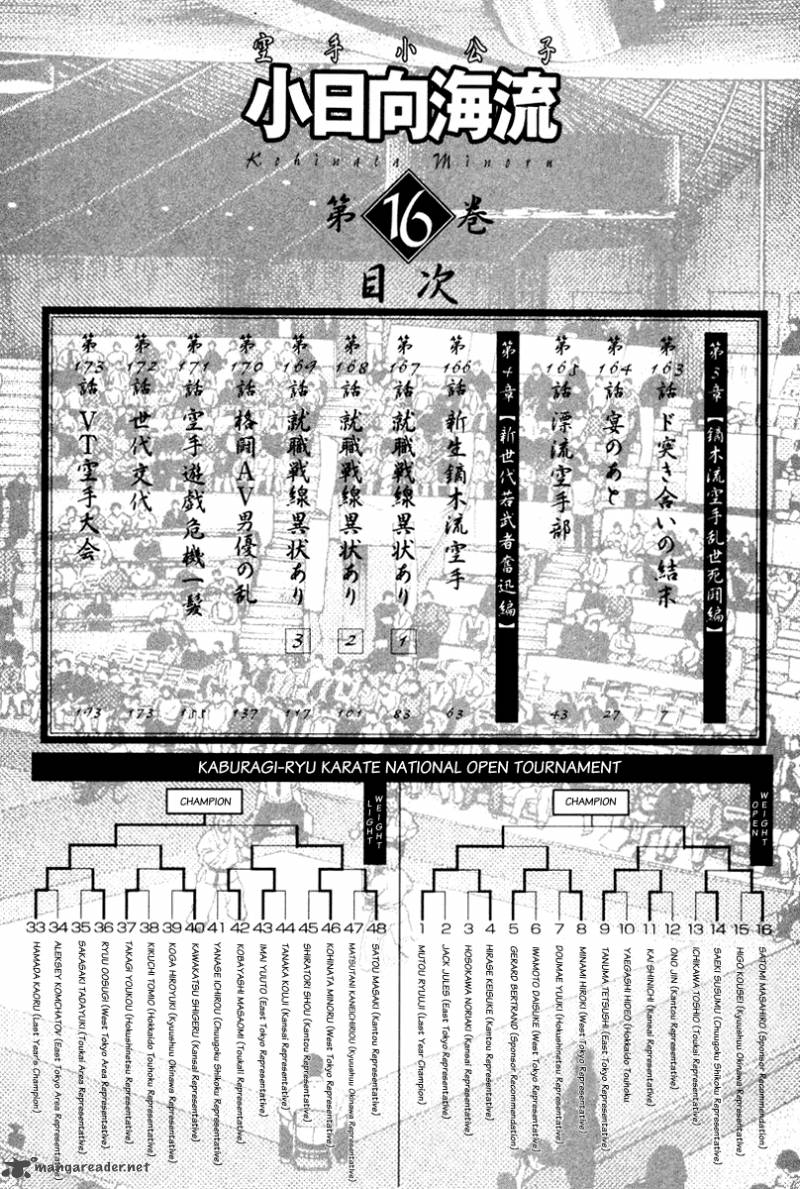 空手小公子
小日向海流
Kohinata Minoru
第16巻
目次
第3章【鏑木流空手乱世死闘編】
第163話 ド突き合いの結末 7
第164話 宴のあと 27
第165話 漂流空手部 43
第4章【新世代若武者奮迅編】
第166話 新生鏑木流空手 63
第167話 就職戦線異状あり 1 83
第168話 就職戦線異状あり 2 101
第169話 就職戦線異状あり 3 117
第170話 格闘AV男優の乱 137
第171話 空手遊戯危機一髪 155
第172話 世代交代 173
第173話 VT空手大会 193
KABURAGI-RYU KARATE NATIONAL OPEN TOURNAMENT
LIGHT WEIGHT
CHAMPION
33 HAMADA KAORU (Last Year's Champion)
34 ALEKSEY KOMCHATOV (East Tokyo Area Representative)
35 SAKASAKI TADAYUKI (Toukai Area Representative)
36 RYUU OOSUGI (West Tokyo Area Representative)
37 TAKAGI YOUKOU (Hokushinetsu Representative)
38 KIKUCHI TOMIO (Hokkaido Touhoku Representative)
39 KOGA HIROYUKI (Kyuushuu Okinawa Representative)
40 KAWAKATSU SHIGERU (Kansai Representative)
41 YANASE ICHIROU (Chuugoku Shikoku Representative)
42 KOBAYASHI MASAOMI (Toukai Representative)
43 IMAI YUUTO (East Tokyo Representative)
44 TANAKA KOUJI (Kansai Representative)
45 SHIRATORI SHOU (Kantou Representative)
46 KOHINATA MINORU (West Tokyo Representative)
47 MATSUTANI KANEICHIROU (Kyuushuu Okinawa Representative)
48 SATOU MASAKI (Kantou Representative)
OPEN WEIGHT
CHAMPION
1 MUTOU RYUUJI (Last Year Champion)
2 JACK JULES (East Tokyo Representative)
3 HOSOKAWA NORIAKI (Kansai Representative)
4 HIRASE KEISUKE (Kantou Representative)
5 GERARD BERTRAND (Sponsor Recommendation)
6 IWAMOTO DAISUKE (West Tokyo Representative)
7 DOUMAE YUUKI (Hokushinetsu Representative)
8 MINAMI HIROKI (West Tokyo Representative)
9 TANUMA TETSUSHI (East Tokyo Representative)
10 YAEGASHI HIDEO (Hokkaido Touhoku
11 KAI SHINICHI (Kansai Representative)
12 ONO JIN (Kantou Representative)
13 ICHIKAWA TOSHIO (Toukai Representative)
14 SAEKI SUSUMU (Chuugoku Shikoku Representative)
15 HIGO KOUSEI (Kyuushuu Okinawa Representative)
16 SATOMI MASAHIRO (Sponsor Recommendation)
mangareader.net